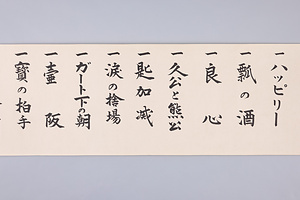 一ハッピリー
一瓢の酒
一良心
一久公と熊公
一匙加減
一涙の捨場
一ガート下の朝
一壷阪
一寳の拍手